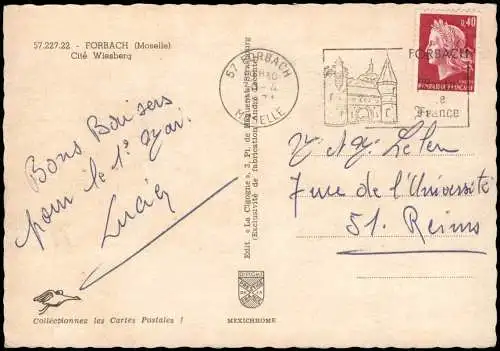 57.227.22. - FORBACH (Moselle)
Cité Wiesberg
Bons Baisers
pour le 1° Mai.
Lucien
Collectionnez les Cartes Postales !
MEXICHROME
Edit. « La Cigogne », 3, Pl. de Haguenau, Strasbourg
(Exclusivité de fabrication André Leconte)
57 FORBACH
MOSELLE
0,40
REPUBLIQUE FRANÇAISE
FORBACH
France
7 rue de l'Université
51. Reims